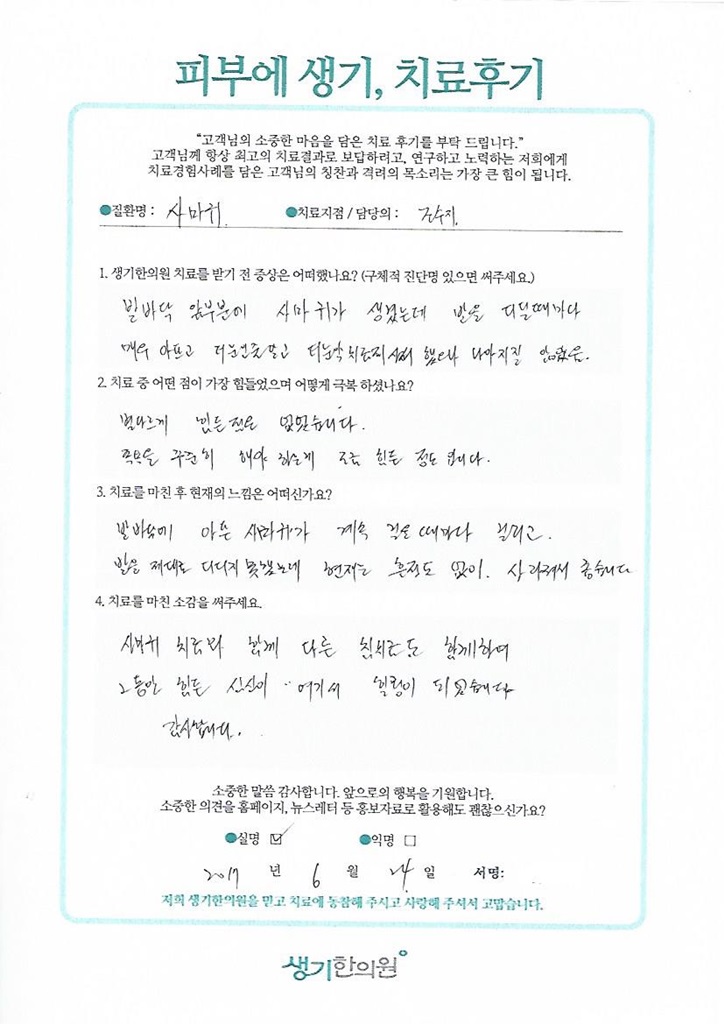 피부에 생기, 치료후기
“고객님의 소중한 마음을 담은 치료 후기를 부탁 드립니다.”
고객님께 항상 최고의 치료결과로 보답하려고, 연구하고 노력하는 저희에게
치료경험사례를 담은 고객님의 칭찬과 격려의 목소리는 가장 큰 힘이 됩니다.
●질환명 : 사마귀 ●치료지점 / 담당의 :
1. 생기한의원 치료를 받기 전 증상은 어떠했나요? (구체적 진단명 있으면 써주세요.)
발바닥 앞부분에 사마귀가 생겼는데 발을 디딜때마다
매우 아프고 나아지질 않았음.
2. 치료 중 어떤 점이 가장 힘들었으며 어떻게 극복 하셨나요?
별다르게 힘든점은 없었습니다.
꾸준히 해야 하는게 조금 힘든 정도 입니다.
3. 치료를 마친 후 현재의 느낌은 어떠신가요?
발바닥에 아픈 사마귀가 계속 걸을때마다 걸리고.
발을 제대로 디디지 못했는데 현재는 흔적도 없이. 사라져서 좋습니다
4. 치료를 마친 소감을 써주세요.
사마귀 치료와 함께 다른 침치료도 함께하여
그동안 힘든 심신이 여기서 힐링이 되었습니다
감사합니다.
소중한 말씀 감사합니다. 앞으로의 행복을 기원합니다.
소중한 의견을 홈페이지, 뉴스레터 등 홍보자료로 활용해도 괜찮으신가요?
●실명 ☑ ●익명 □
2017 년 6 월 24 일 서명:
저희 생기한의원을 믿고 치료에 동참해 주시고 사랑해 주셔서 고맙습니다.
생기한의원